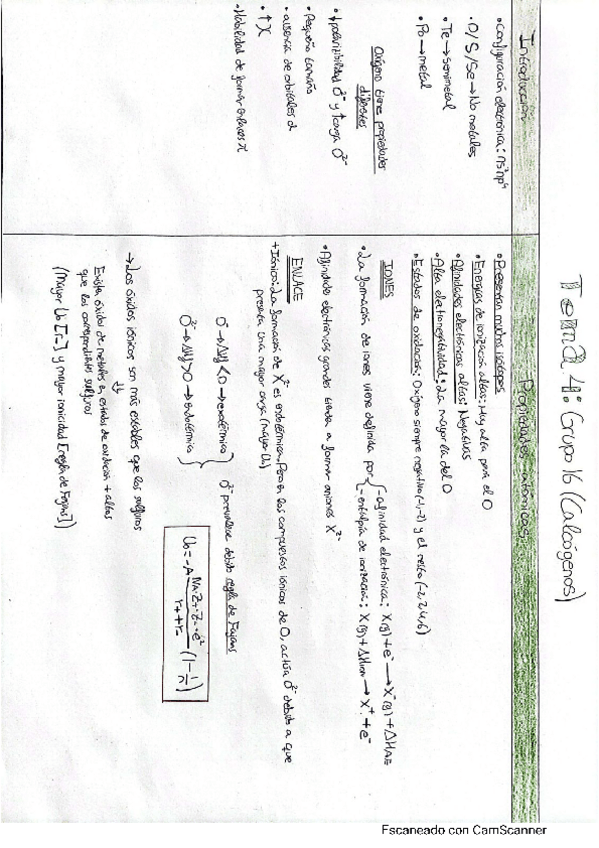 Tema 4: Grupo 16 (Calcógenos)
Introducción
• Configuración electrónica: ns²np⁴
• O/S/Se → No metales
• Te → semimetal
• Po → metal
Oxígeno tiene propiedades
diferentes
• ↓ polarizabilidad O²⁻ y ↑ carga O²⁻
• Pequeño tamaño
• ausencia de orbitales d
• ↑ X
• Habilidad de formar enlaces π
Propiedades atómicas
• Presentan muchos isótopos
• Energías de ionización altas: Muy alta para el O
• Afinidades electrónicas altas: Negativas
• Alta electronegatividad: La mayor la del O
• Estados de oxidación: Oxígeno siempre negativo (-1,-2) y el resto (-2,2,4,6)
IONES
• La formación de iones viene definida por
- afinidad electrónica: X(g) + e⁻ → X⁻(g) + ΔHAE
- entalpía de ionización: X(g) + ΔHion → X⁺ + e⁻
• Afinidades electrónicas grandes tienden a formar aniones X²⁻
ENLACE
+ Iónico: La formación de X²⁻ es endotérmica. Pero en los compuestos iónicos de O, actúa O²⁻ debido a que
presenta una mayor carga (mayor U₀)
O⁻ → ΔHf < 0 → exotérmica
O²⁻ → ΔHf > 0 → endotérmica
O²⁻ prevalece debido regla de Fajans
U₀ = -A NA·Z₊·Z₋·e² / r₊+r₋ (1 - 1/n)
→ Los óxidos iónicos son más estables que los sulfuros
⇓
Existen óxidos de metales en estados de oxidación + altos
que los correspondientes sulfuros
(Mayor U₀ [r₋] y mayor ionicidad [regla de Fajans])
Escaneado con CamScanner